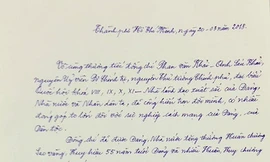 Thành phố Hồ Chí Minh, ngày 20-03 năm 2018.
Vô cùng thương tiếc đồng chí Phan Văn Khải, Anh Sáu Khải,
nguyên Ủy viên Bộ Chính trị, nguyên Thủ tướng Chính phủ, đại biểu
Quốc hội khóa VIII, IX, X, XI - Nhà lãnh đạo xuất sắc của Đảng,
Nhà nước và Nhân dân ta, đã cống hiến trọn đời mình, có nhiều
đóng góp to lớn đối với sự nghiệp cách mạng của Đảng, của
Dân tộc.
Đồng chí đã được Đảng, Nhà nước tặng thưởng Huân chương
Sao vàng, Huy hiệu 55 năm tuổi Đảng và nhiều Huân, Huy chương